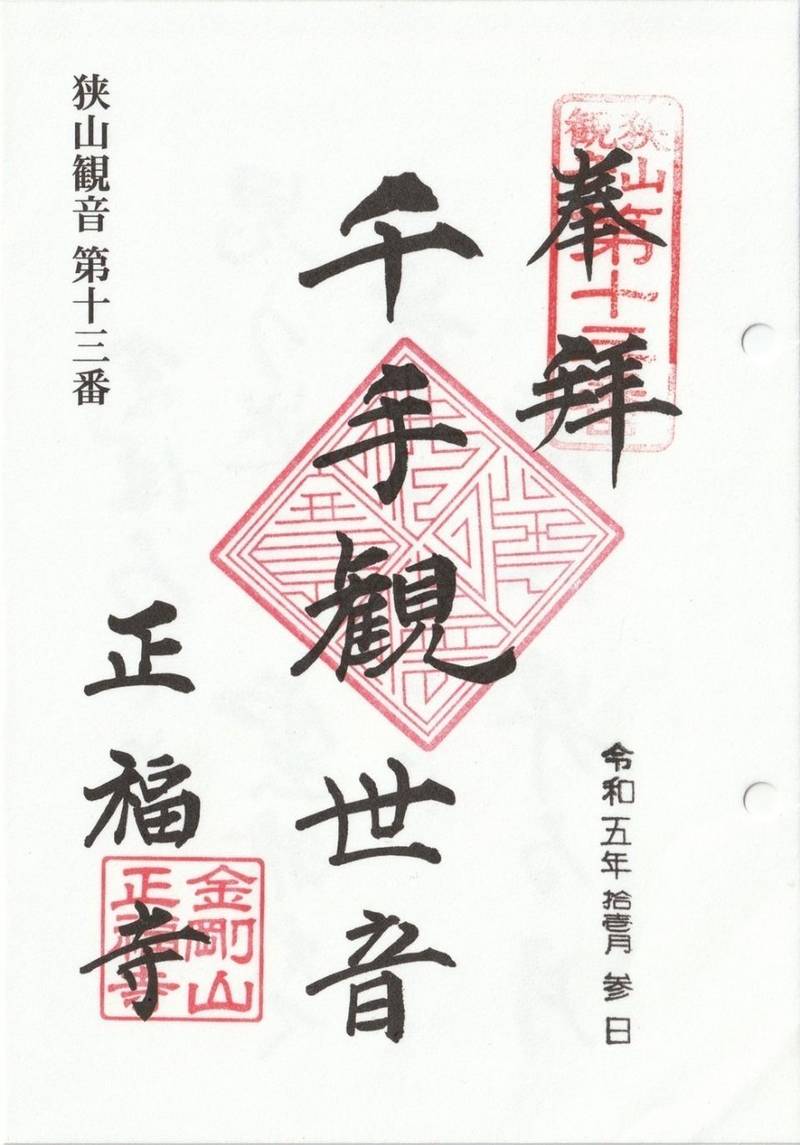 奉拝
狭山観音第十三番
千手観世音
令和五年 拾壱月 参日
正福寺
金剛山
正福寺
狭山観音 第十三番